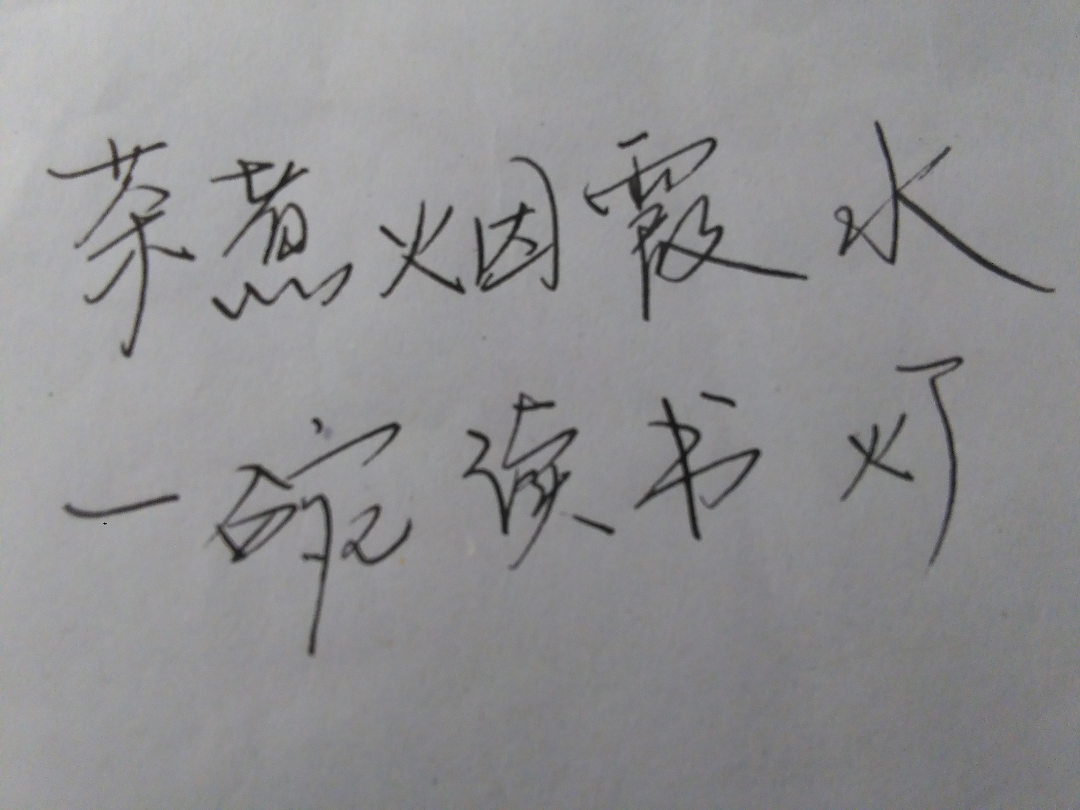 茶煮烟霞水
一碗读书灯